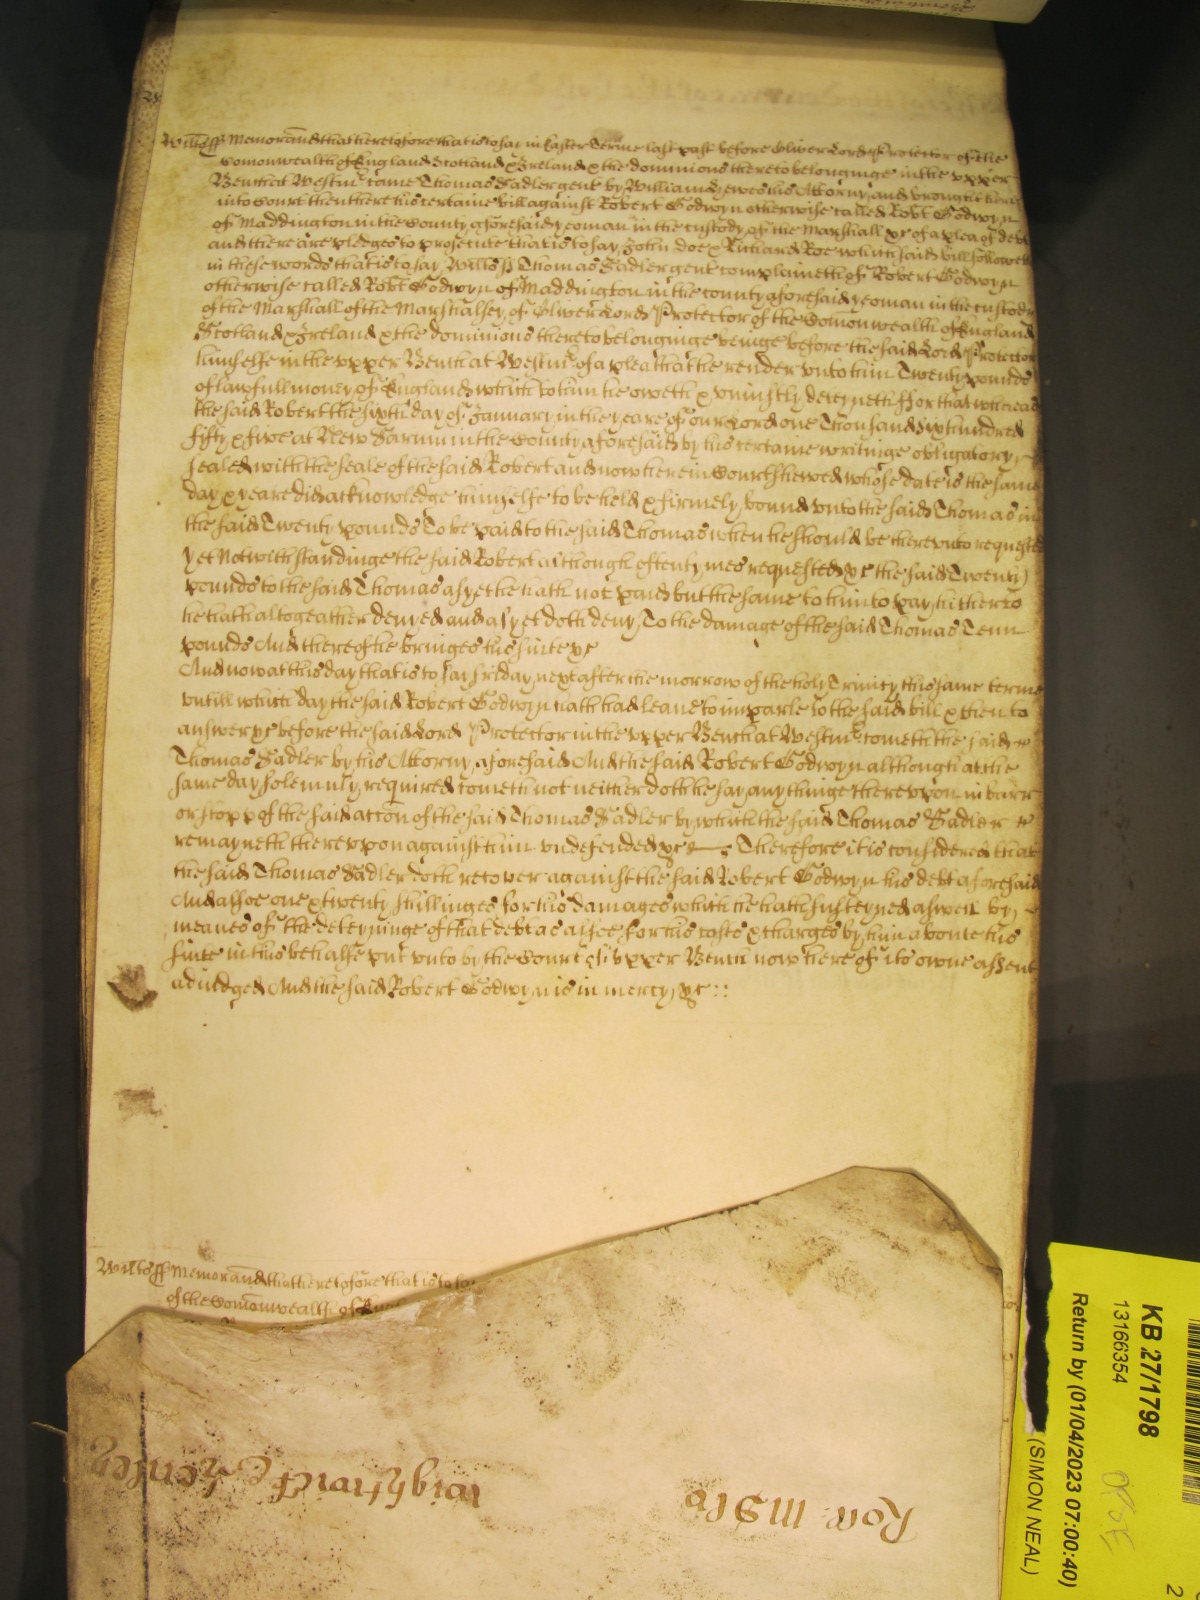 Wiltss ff Memorand that heretofore that is to say in Easter Terme last past before Oliver Lord Protector of the
Comonwealth of England Scotland & Ireland & the dominions thereto belonginge in the vpper
Bench at Westmr came Thomas Sadler gent by William Hewes his Attorny and brought
into Court then there his certaine bill against Robert Godwyn otherwise called Robt Godwyn
of Maddington in the County aforesaid yeoman in the custody of the Marshall &c of a plea of debt
and there are pledges to prosecute that is to say John doe & Richard Roe which said bill followeth
in these words that is to say Wiltss ss Thomas Sadler gent complaineth of Robert Godwyn
otherwise called Robt Godwyn of Maddington in the county aforesaid yeoman in the custody
of the Marshall of the Marshalsey of Oliver Lord Protector of the Comonwealth of England
Scotland & Ireland & the dominions thereto belonginge beinge before the said Lord Protector
himselfe in the vpper Bench at Westmr of a plea that he render vnto him Twenty pounds
of lawfull money of England which to him he oweth & vniustly deteyneth For that whereas
the said Robert the sixth day of January in the yeare of our Lord one Thousand Six hundred
fifty & five at New Sarum in the County aforesaid by his certaine writinge obligatory
sealed with the seale of the said Robert and now here in Court shewed whose date is the same
day & yeare did acknowledge himselfe to be held & firmely bound vnto the said Thomas in
the said Twenty pounds To be paid to the said Thomas when he should be therevnto requested
yet Notwithstandinge the said Robert although oftentymes requested &c the said Twenty
pounds to the said Thomas as yet he hath not paid but the same to him to pay hitherto
he hath altogeather denyed and as yet doth deny To the damage of the said Thomas Tenn
pounds And thereof he bringes his suite &c
And now at this day that is to say friday next after the morrow of the holy Trinity this same terme
vntill which day the said Robert Godwyn hath had leave to imparle to the said bill & then to
answer &c before the said Lord Protector in the vpper Bench at Westmr cometh the said
Thomas Sadler by his Attorny aforesaid And the said Robert Godwyn although at the
same day solemnly required cometh not neither doth he say any thinge therevpon in barr
or stopp of the said accon of the said Thomas Sadler by which the said Thomas Sadler
remayneth therevpon against him vndefended &c Therefore it is considered that
the said Thomas Sadler doth recover against the said Robert Godwyn his debt aforesaid
And alsoe one & twenty shillinges for his damages which he hath susteyned aswell by
meanes of the deteyninge of that debt as alsoe for his costs & charges by him aboute his
suite in this behalfe put vnto by the Court of vpper Bench now here of its owne assent
adiudged And the said Robert Godwyn is in mercy &c ::
Wiltss ff Memorand that heretofore that is to say
of the Comonwealth of
KB 27/1798
13166354
Return by (01/04/2023 07:00:40)
(SIMON NEAL)